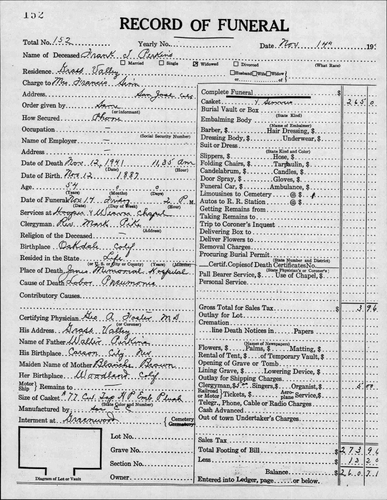 152
RECORD OF FUNERAL
Total No. 152 Yearly No. Date Nov. 14 193
Name of Deceased Frank J. Perkins
Married Single Widowed Divorced (What Race)
Residence Grass Valley Husband Wife Widow of
Charge to Mrs. Francis
Address San Jose
Order given by Same
How Secured Phone
Occupation
(Social Security Number)
Name of Employer
Date of Death Nov. 12, 1941 11,35 am
Date of Birth Nov. 12, 1887
Age 54 0
(Years) (Months) (Days)
Date of Funeral Nov 14 Friday 2 P.M.
(Date) (Day of Week) (Hour)
Services at Hooper & Weaver Chapel
Clergyman Rev. Mark
Religion of the Deceased
Birthplace Oakdale Calif
Resided in the State Life
Place of Death Jones Memorial Hospital
Cause of Death Lobar Pneumonia
Contributory Causes
Certifying Physician Geo A Foster M.D.
His Address Grass Valley
Name of Father Wallis Perkins
His Birthplace Carson City Nev
Maiden Name of Mother Blanche Brown
Her Birthplace Woodland Calf
Motor Ship Remains to
Size of Casket
(State Color and Number)
Manufactured by
Interment at Greenwood Cemetery
Lot No.
Grave No.
Section No.
Owner
Diagram of Lot or Vault
Complete Funeral
Casket & Service 265 0
Burial Vault or Box
(State Kind)
Embalming Body
(Name of Embalmer)
Barber, $ Hair Dressing, $
Dressing Body, $ Underwear, $
Suit or Dress
(State Kind and Color)
Slippers, $ Hose, $
Folding Chairs, $ Tarpaulin, $
Candelabrum, $ Candles, $
Door Spray, $ Gloves, $
Funeral Car, $ Ambulance, $
Limousines to Cemetery @ $
Autos to R. R. Station @ $
Getting Remains
Taking Remains to
Trip to Coroner's Inquest
Delivering Box to
Deliver Flowers to
Removal Charge
Procuring Burial Permit
(State Number and District)
Certif. Copies of Death Certificates No.
(State Physician's or Coroner's)
Pall Bearer Service, $ Use of Chapel, $
Personal Service
Gross Total for Sales Tax 3 96
Outlay for Lot
Cremation
line Death Notices in Papers
(Names of Newspapers)
Flowers, $ Palms, $ Matting, $
Rental of Tent, $ of Temporary Vault, $
Opening of Grave or Tomb
Lining Grave, $ Lowering Device, $
Outlay for Shipping Charges
Clergyman, $ Singers, $ Organist, $ 5 00
Railroad Motor Tickets, $ plane Service, $
Telegr., Phone, Cable or Radio Charges
Cash Advanced
Out of town Undertaker's Charges
Sales Tax
Total Footing of Bill 273 96
Less 13 25
Balance 260 71
Entered into Ledger, page or below.